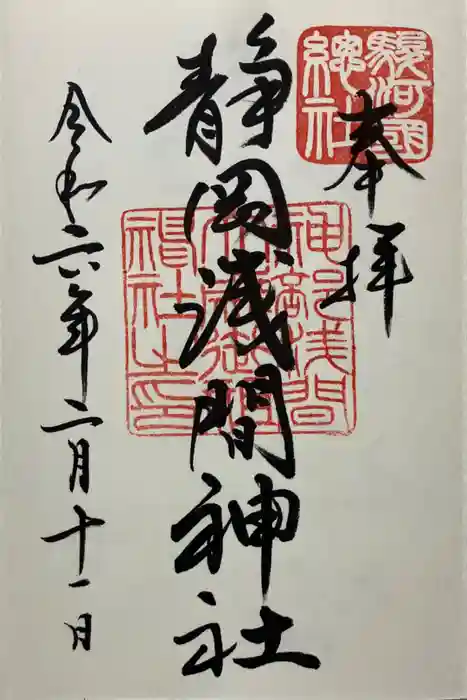 駿河國
總社
奉拝
静岡浅間神社
神部浅間
大歳御祖
神社之印
令和六年二月十一日